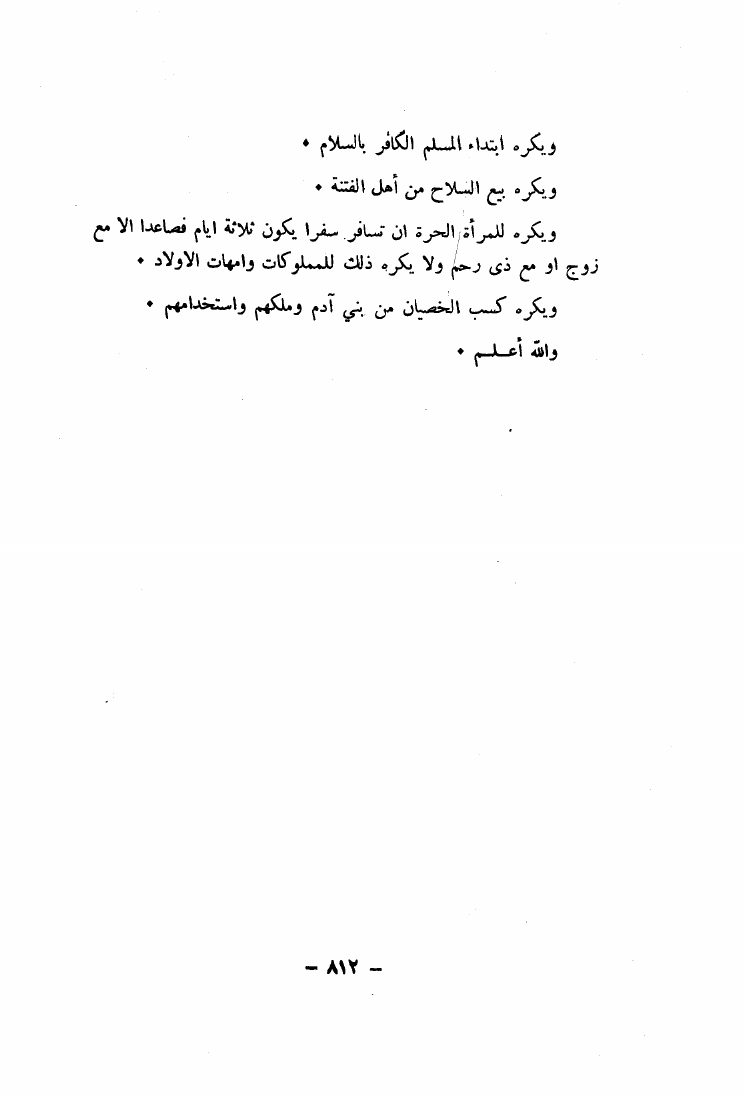 ويكره ابتداء المسلم الكافر بالسلام ٠
ويكره بيع السلاح من أهل الفتنة ٠
ويكره للمرأة الحرة ان تسافر سفرا يكون ثلاثة ايام فصاعدا الا مع
زوج او مع ذى رحم ولا يكره ذلك للمملوكات وامهات الاولاد ٠
ويكره كسب الخصيان من بني آدم وملكهم واستخدامهم ٠
والله أعلــم ٠
- ٨١٢ -